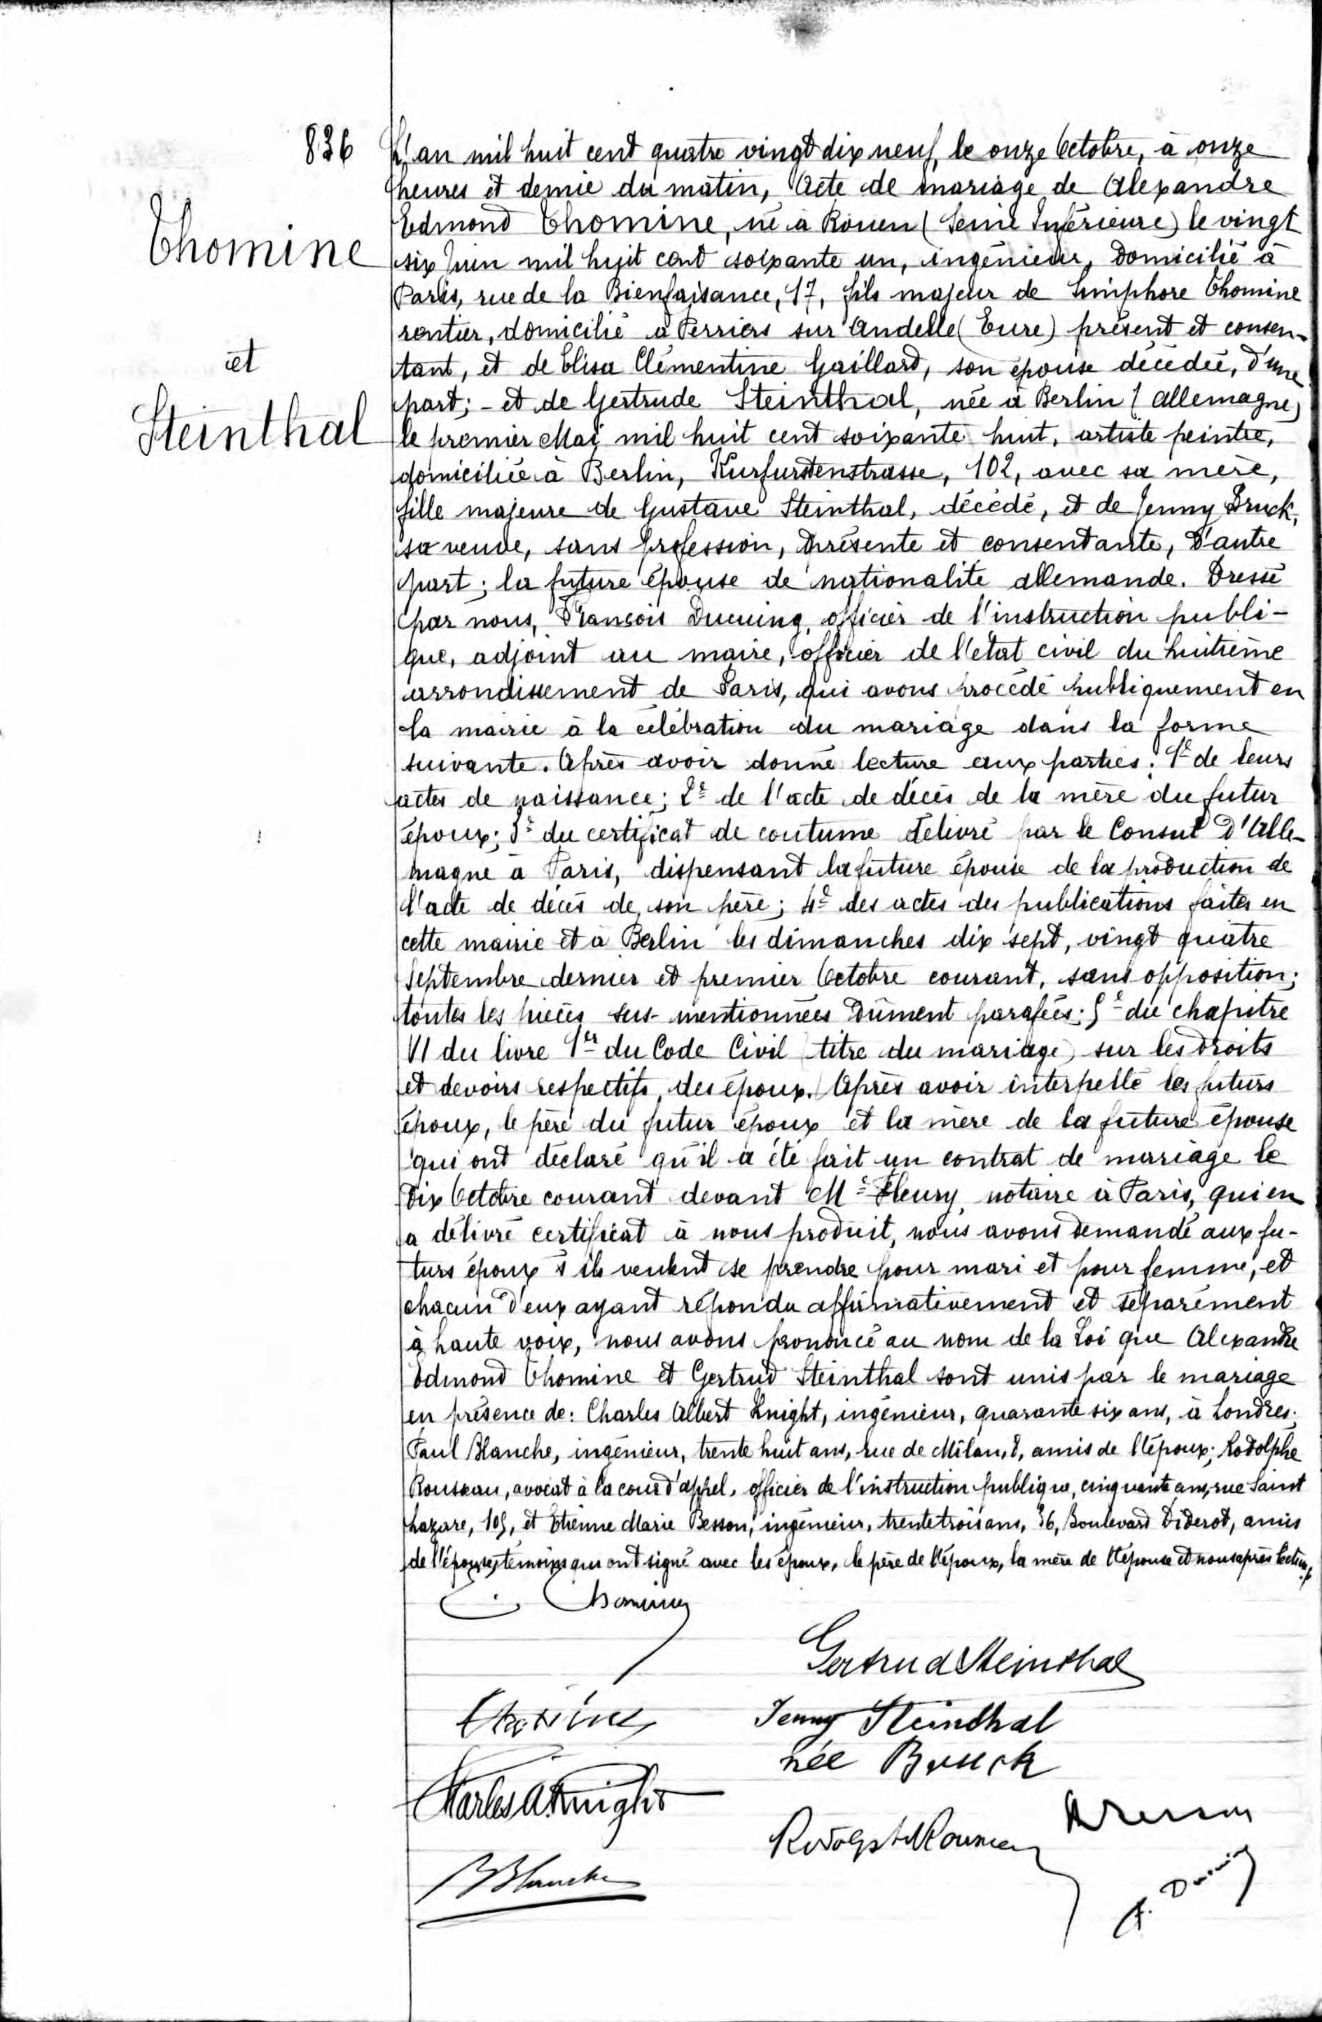 836
Thomine
et
Steinthal
L'an mil huit cent quatre vingt dix neuf, le onze Octobre, à onze
heures et demie du matin, Acte de mariage de Alexandre
Edmond Thomine, né à Rouen (Seine Inférieure) le vingt
six Juin mil huit cent soixante un, ingénieur, domicilié à
Paris, rue de la Bienfaisance, 17, fils majeur de Simphore Thomine
rentier, domicilié à Perriers sur Andelle (Eure) présent et consen-
tant, et de Elisa Clémentine Gaillard, son épouse décédée, d'une
part; - et de Gertrude Steinthal, née à Berlin (Allemagne)
le premier Mai mil huit cent soixante huit, artiste peintre,
domiciliée à Berlin, Kurfurstenstrasse, 102, avec sa mère,
fille majeure de Gustave Steinthal, décédé, et de Jenny Bruck,
sa veuve, sans profession, présente et consentante, d'autre
part; la future épouse de nationalité allemande. Dressé
par nous, François Ducuing, officier de l'instruction publi-
que, adjoint au maire, officier de l'état civil du huitième
arrondissement de Paris, qui avons procédé publiquement en
la mairie à la célébration du mariage dans la forme
suivante. Après avoir donné lecture aux parties: 1º de leurs
actes de naissance; 2º de l'acte de décès de la mère du futur
époux; 3º du certificat de coutume délivré par le Consul d'Alle-
magne à Paris, dispensant la future épouse de la production de
l'acte de décès de son père; 4º des actes des publications faites en
cette mairie et à Berlin les dimanches dix sept, vingt quatre
Septembre dernier et premier Octobre courant, sans opposition;
toutes les pièces sus-mentionnées dûment parafées; 5º du chapitre
VI du livre 1er du Code Civil (titre du mariage) sur les droits
et devoirs respectifs des époux. Après avoir interpellé les futurs
époux, le père du futur époux et la mère de la future épouse
qui ont déclaré qu'il a été fait un contrat de mariage le
dix Octobre courant devant Me Fleury, notaire à Paris, qui en
a délivré certificat à nous produit, nous avons demandé aux fu-
turs époux s'ils veulent se prendre pour mari et pour femme, et
chacun d'eux ayant répondu affirmativement et séparément
à haute voix, nous avons prononcé au nom de la Loi que Alexandre
Edmond Thomine et Gertrud Steinthal sont unis par le mariage
en présence de: Charles Albert Knight, ingénieur, quarante six ans, à Londres;
Paul Blanche, ingénieur, trente huit ans, rue de Milan, 8, amis de l'époux; Rodolphe
Rousseau, avocat à la cour d'appel, officier de l'instruction publique, cinquante ans, rue Saint
Lazare, 105, et Etienne Marie Besson, ingénieur, trente trois ans, 36, Boulevard Diderot, amis
de l'épouse, témoins qui ont signé avec les époux, le père de l'époux, la mère de l'épouse et nous après lecture
E. Thomine
Gertrud Steinthal
Thomine
Jenny Steinthal
née Bruck
Charles A. Knight
Rodolphe Rousseau
Besson
P Blanche
F. Ducuing